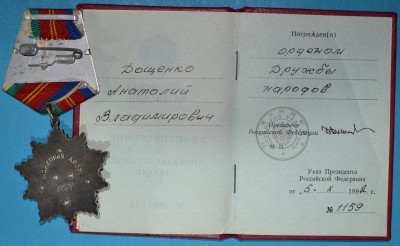 Дощенко
Анатолий
Владимирович
Награжден(а)
орденом
Дружбы
народов
Президент
Российской Федерации
М. П.
Указ Президента
Российской Федерации
от „5. X 1992 г.
№ 1159